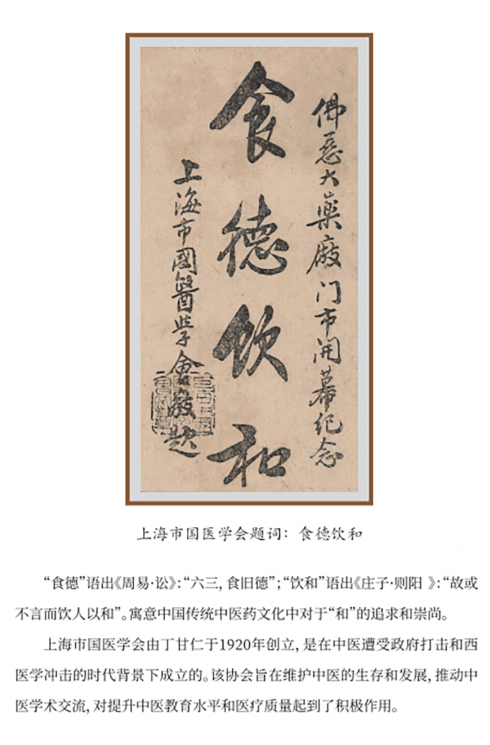 佛慈大藥廠门市开幕纪念
食德饮和
上海市國醫学會敬题
上海市国医学会题词：食德饮和
“食德”语出《周易·讼》：“六三，食旧德”；“饮和”语出《庄子·则阳 》：“故或
不言而饮人以和”。寓意中国传统中医药文化中对于“和”的追求和崇尚。
上海市国医学会由丁甘仁于1920年创立，是在中医遭受政府打击和西
医学冲击的时代背景下成立的。该协会旨在维护中医的生存和发展，推动中
医学术交流，对提升中医教育水平和医疗质量起到了积极作用。